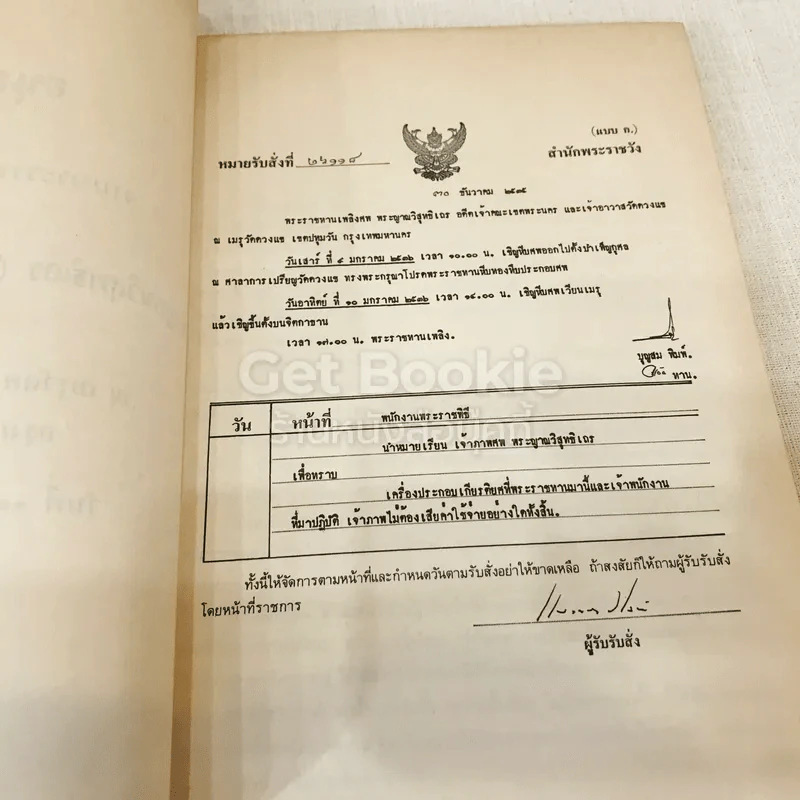 (แบบ ก.)
หมายรับสั่งที่ ๒๖๑๑๘
สำนักพระราชวัง
๓๐ ธันวาคม ๒๕๓๕
พระราชทานเพลิงศพ พระญาณวิสุทธิเถร อดีตเจ้าคณะเขตพระนคร และเจ้าอาวาสวัดดวงแข
ณ เมรุวัดดวงแข เขตปทุมวัน กรุงเทพมหานคร
วันเสาร์ ที่ ๙ มกราคม ๒๕๓๖ เวลา ๑๐.๐๐ น. เชิญหีบศพออกไปตั้งบำเพ็ญกุศล
ณ ศาลาการเปรียญวัดดวงแข ทรงพระกรุณาโปรดพระราชทานหีบทองทึบประกอบศพ
วันอาทิตย์ ที่ ๑๐ มกราคม ๒๕๓๖ เวลา ๑๖.๐๐ น. เชิญหีบศพเวียนเมรุ
แล้วเชิญขึ้นตั้งบนจิตกาธาน
เวลา ๑๗.๐๐ น. พระราชทานเพลิง.
บุญสม พิมพ์.
ทาน.
Get Bookie
ร้านหนังสืออยู่ตู้นี้
วัน
หน้าที่ พนักงานพระราชพิธี
นำหมายเรียน เจ้าภาพศพ พระญาณวิสุทธิเถร
เพื่อทราบ
เครื่องประกอบเกียรติยศที่พระราชทานมานี้และเจ้าพนักงาน
ที่มาปฏิบัติ เจ้าภาพไม่ต้องเสียค่าใช้จ่ายอย่างใดทั้งสิ้น.
ทั้งนี้ให้จัดการตามหน้าที่และกำหนดวันตามรับสั่งอย่าให้ขาดเหลือ ถ้าสงสัยก็ให้ถามผู้รับรับสั่ง
โดยหน้าที่ราชการ
ผู้รับรับสั่ง